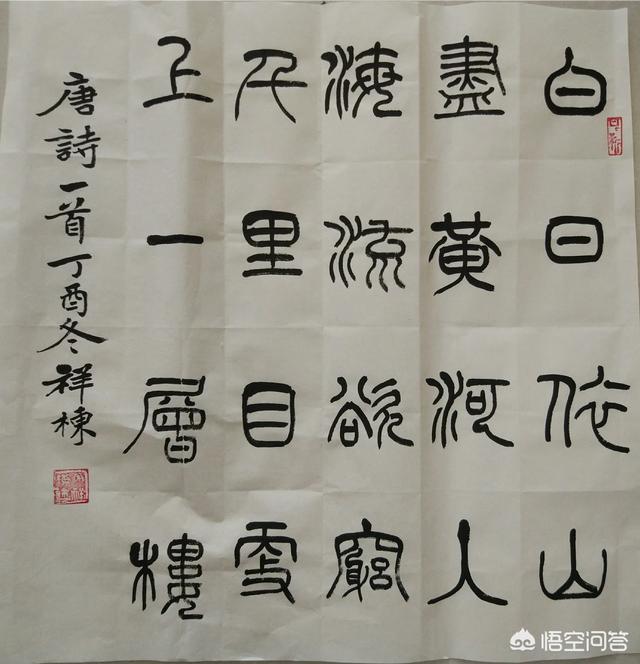 白日依山
盡黃河入
海流欲窮
千里目更
上一層樓
唐詩一首丁酉冬祥棟
悟空问答